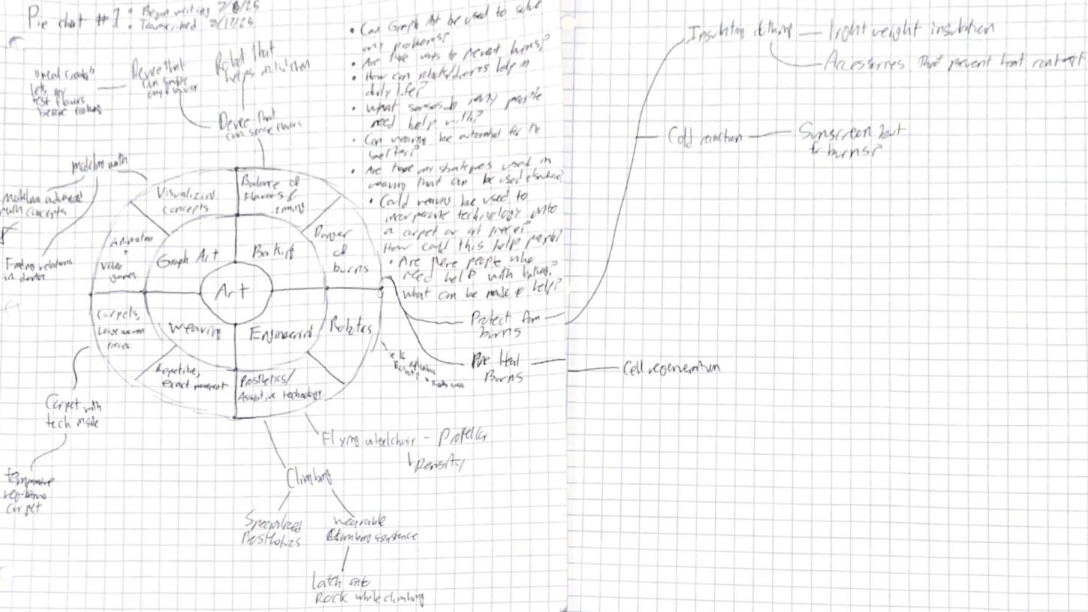 Pie chart #1: Began writing 7/8/25
: Transcribed 7/17/25
"meal creator"
lets you
test flavors
before making
Device that
can
Robot that
helps in kitchen
Device that
can sense flavors
• Can Graph Art be used to solve
any problems?
• Are there ways to prevent burns?
• How can robots/devices help in
daily life?
• What senses do many people
need help with?
• Can weaving be automated for the
better?
• Are there any strategies used in
weaving that can be used elsewhere
• Could weaving be used to
incorporate technology into
a carpet or art piece?
How could this help people?
• Are there people who
need help with baking?
What can be made to help?
modeling with
Modeling advanced
math concepts
Finding relations
in
Visualizing
concepts
Balance of
Flavors &
timing
Danger
of
burns
Animation
+
video
games
Graph Art
Baking
Art
Weaving
Engineering
Robotics
Carpets,
woven
pieces
Repetitive,
exact movement
Prosthetics/
Assistive technology
Protect from
burns
Heal
Burns
Insulating clothing
light weight insulation
Accessories that prevent heat contact
Cold reaction
Sunscreen but
for burns?
Cell regeneration
Carpet with
tech inside
temperature
regulating
carpet
Flying wheelchair - Propeller
Density
Climbing
Specialized
Prosthetics
Wearable
Climbing assistance
Latch onto
Rock while climbing